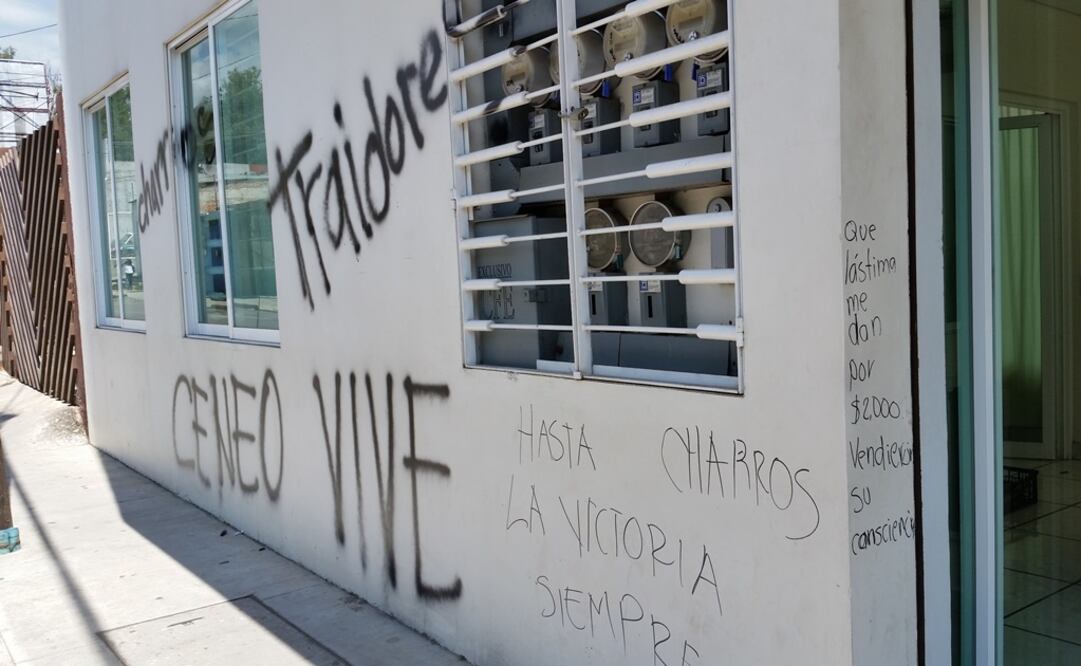 traidore
CENEO VIVE
EXCLUSIVO
CFE
HASTA
LA VICTORIA
SIEMPRE
CHARROS
Que
lástima
me
dan
por
$2,000
Vendieron
su
consciencia